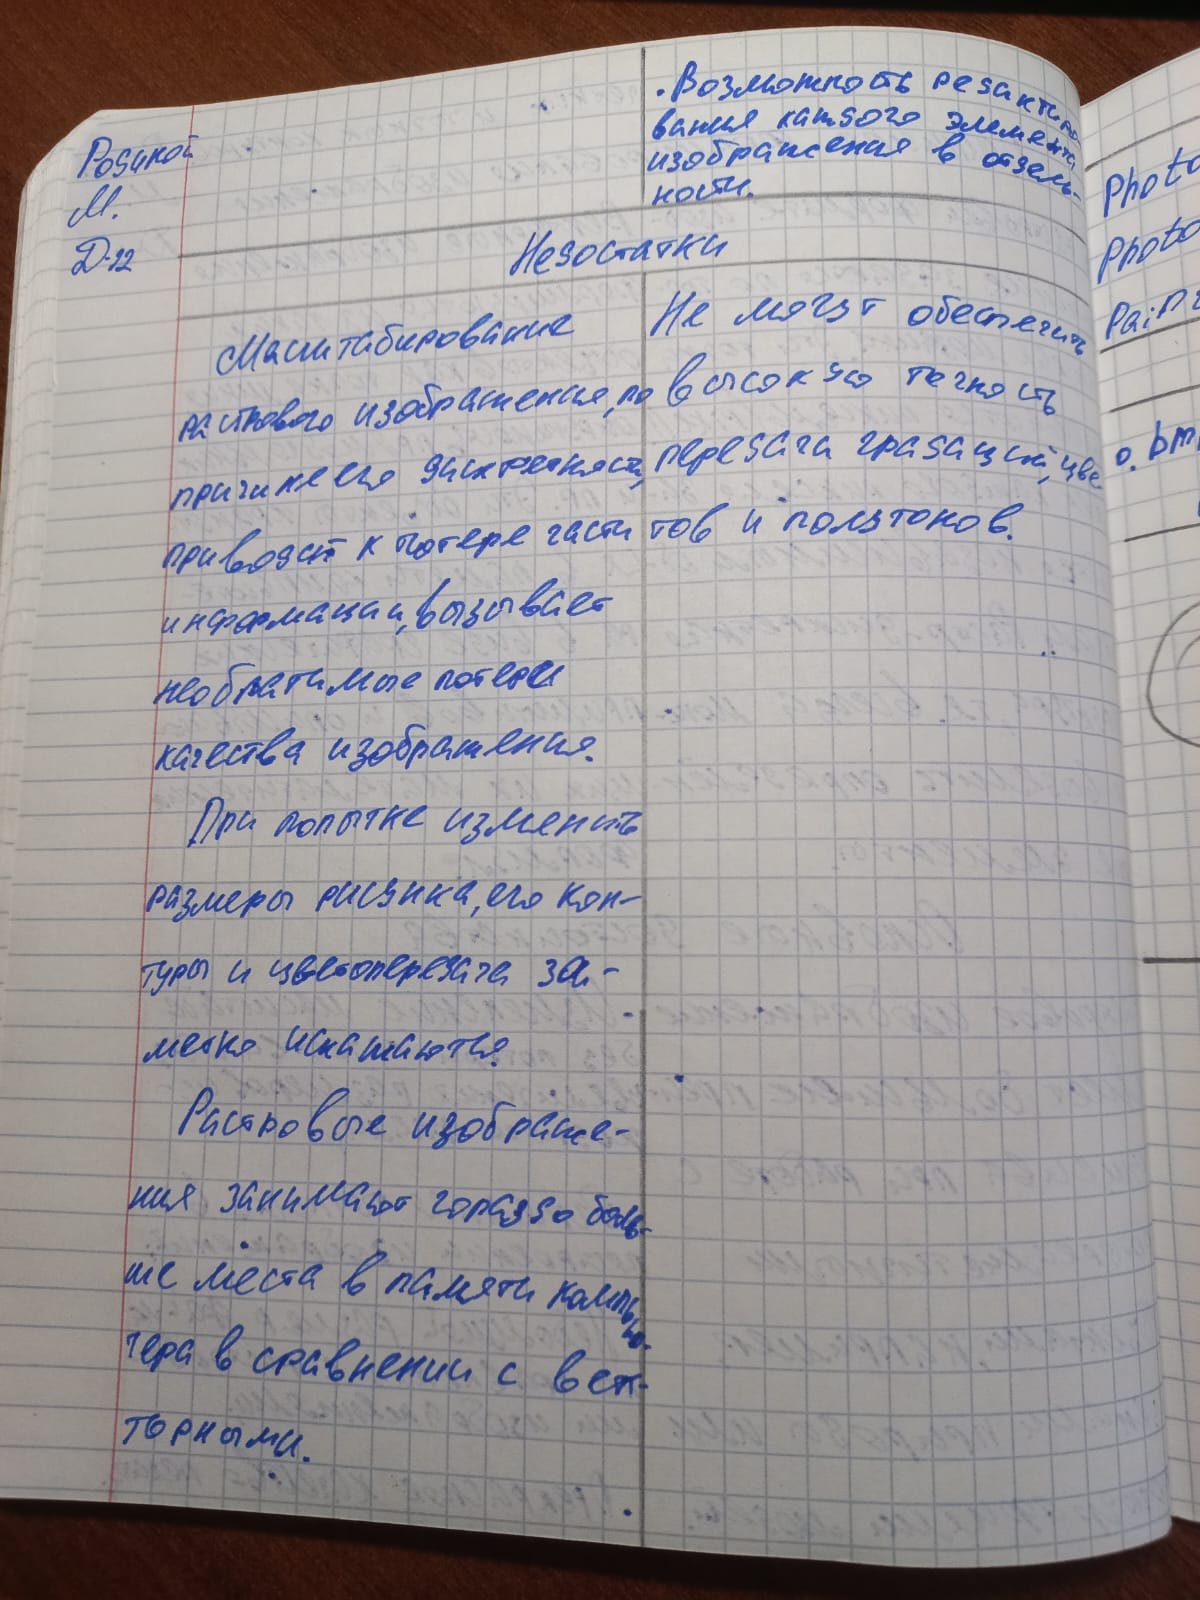 Родикой
М.
Д-12
• Возможность редактиро
вания каждого элемента
изображения в отдель-
ности.
Недостатки
Масштабирование
растрового изображения, по
причине его дискретности,
приводит к потере части
информации, вызывает
необратимые потери
качества изображения.
При попытке изменить
размеры рисунка, его кон-
туры и цветопередача за-
метно искажаются.
Растровые изображе-
ния занимают гораздо боль-
ше места в памяти компью-
тера в сравнении с век-
торными.
Не могут обеспечить
высокую точность
передача градаций, цве
тов и полутонов.
Photo
Photo
Pain
0. bm